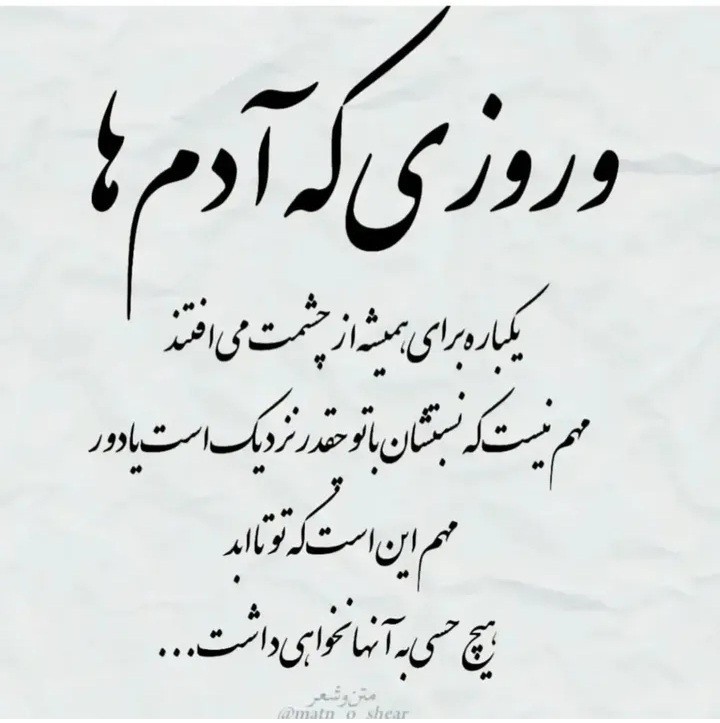 و روزی که آدم ها
یکباره برای همیشه از چشمت می افتند
مهم نیست که نسبتشان با تو چقدر نزدیک است یا دور
مهم این است که تو تا ابد
هیچ حسی به آنها نخواهی داشت...
متن و شعر
@matn_o_shear